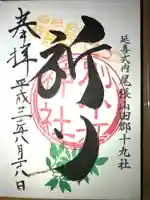 延喜式内尾張山田郡十九社
祈り
奉拝
平成三十年八月十八日